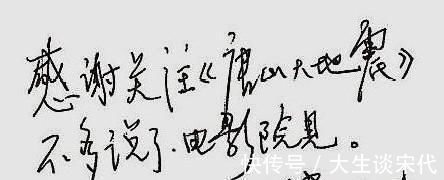 感谢关注《唐山大地震》
不多说了.电影院见。
快传号/大生谈宋代